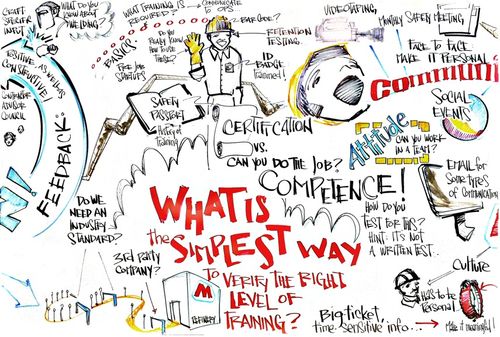 CRAFT
SPECIFIC
INPUT
WHAT DO YOU
KNOW ABOUT
WELDING?
WHAT TRAINING IS
REQUIRED?
COMMUNICATE
BASICS:
DO YOU
REALLY KNOW
HOW TO USE
THESE?
PRE JOB
STARTUPS
BAR CODE?
RETENTION
TESTING
ID
BADGE
Trained!
VIDEOTAPING,
MONTHLY SAFETY MEETING
FACE TO FACE
MAKE IT PERSONAL
Communi
SOCIAL
EVENTS
POSITIVE AS WELL AS
CONSTRUCTIVE!
CONTRACTOR
ADVISOR
COUNCIL
FEEDBACK:
N!
SAFETY
PASSPORT
History of
Training
CERTIFICATION
VS.
CAN YOU DO THE JOB?
COMPETENCE!
Attitude
CAN YOU WORK
IN A TEAM?
EMAIL FOR
SOME TYPES
OF COMMUNICATION
HOW DO YOU
TEST FOR THIS?
HINT: IT'S NOT
A WRITTEN TEST...
DO WE
NEED AN
INDUSTRY
STANDARD?
3rd PARTY
COMPANY?
WHAT IS
the SIMPLEST WAY
TO VERIFY THE RIGHT
LEVEL OF
TRAINING?
REFINERY
Big-ticket,
time sensitive info...
CULTURE
Has to be
Personal
Make it meaningful!